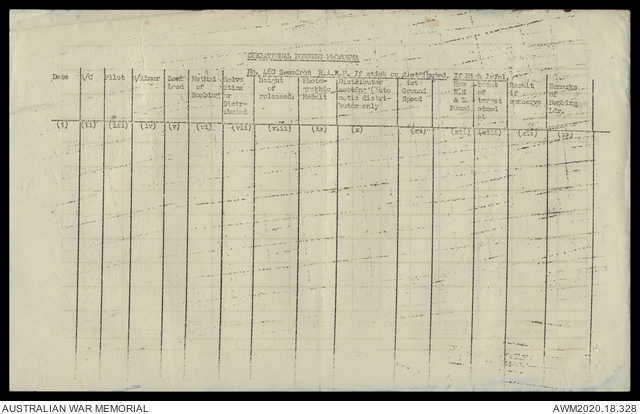 OPERATIONAL BOMBING PROFORMA
No. 460 Squadron R.A.A.F. If stick or distributed. If High Level.
Date A/C Pilot B/Aimer Bomb Load Method of Bombing Salvo Stick or Distributed Height of released. Photographic Result Distributor setting (Auto matic distributor only Ground Speed W.S & D. Found. Point of target aimed at Result if observed Remarks of Bombing Ldr.
(i) (ii) (iii) (iv) (v) (vi) (vii) (viii) (ix) (x) (xi) (xii) (xiii) (xiv) (xv)
AUSTRALIAN WAR MEMORIAL
AWM2020.18.328